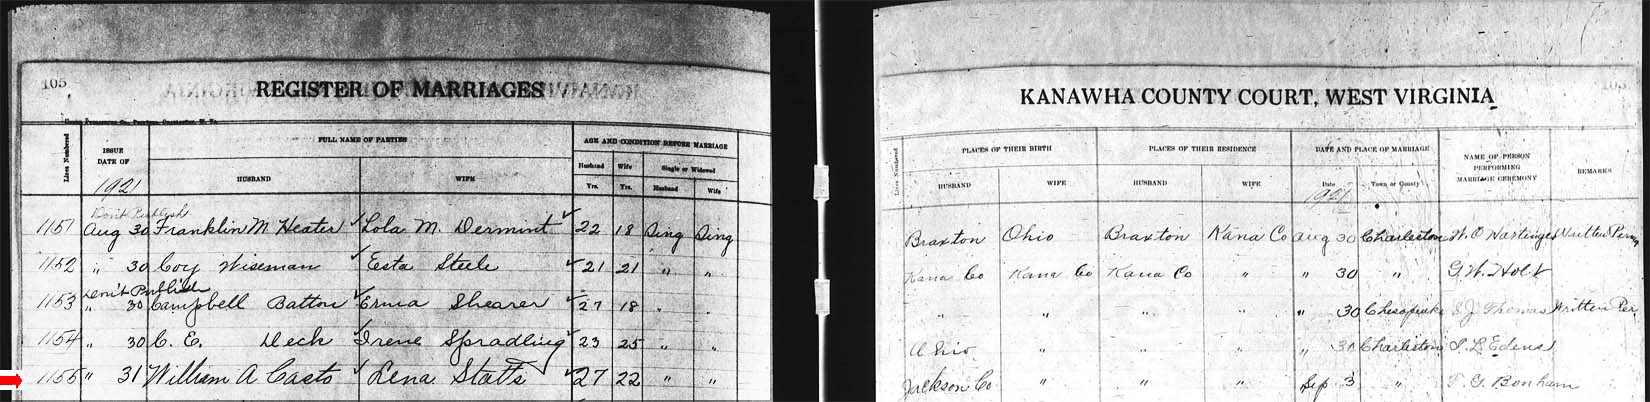 105
REGISTER OF MARRIAGES
Lines Numbered
ISSUE
DATE OF
FULL NAME OF PARTIES
AGE AND CONDITION BEFORE MARRIAGE
HUSBAND
WIFE
Husband
Wife
Single or Widowed
Yrs.
Yrs.
Husband
Wife
1921
Don't Publish
1151 Aug 30 Franklin M. Heater ✓ Lola M. Dermint ✓ 22 18 Sing Sing
1152 " 30 Coy Wiseman ✓ Esta Steele ✓ 21 21 " "
Don't Publish
1153 " 30 Campbell Batton ✓ Erma Shearer ✓ 27 18 " "
1154 " 30 C. E. Deck ✓ Irene Spradling ✓ 23 25 " "
1155 " 31 William A Casto ✓ Lena Statts ✓ 27 22 " "
KANAWHA COUNTY COURT, WEST VIRGINIA
Lines Numbered
PLACES OF THEIR BIRTH
PLACES OF THEIR RESIDENCE
DATE AND PLACE OF MARRIAGE
NAME OF PERSON
PERFORMING
MARRIAGE CEREMONY
REMARKS
HUSBAND
WIFE
HUSBAND
WIFE
Date
Town or County
1921
Braxton Ohio Braxton Kana Co Aug 30 Charleston W. O Hastings Written Perm
Kana Co Kana Co Kana Co " " 30 " G. W. Holt
" " " " " 30 Chesapeake S. J. Thomas Written Per
Ohio " " " " 30 Charleston S. L. Edens
Jackson Co " " " Sep 3 " T. G. Bonham